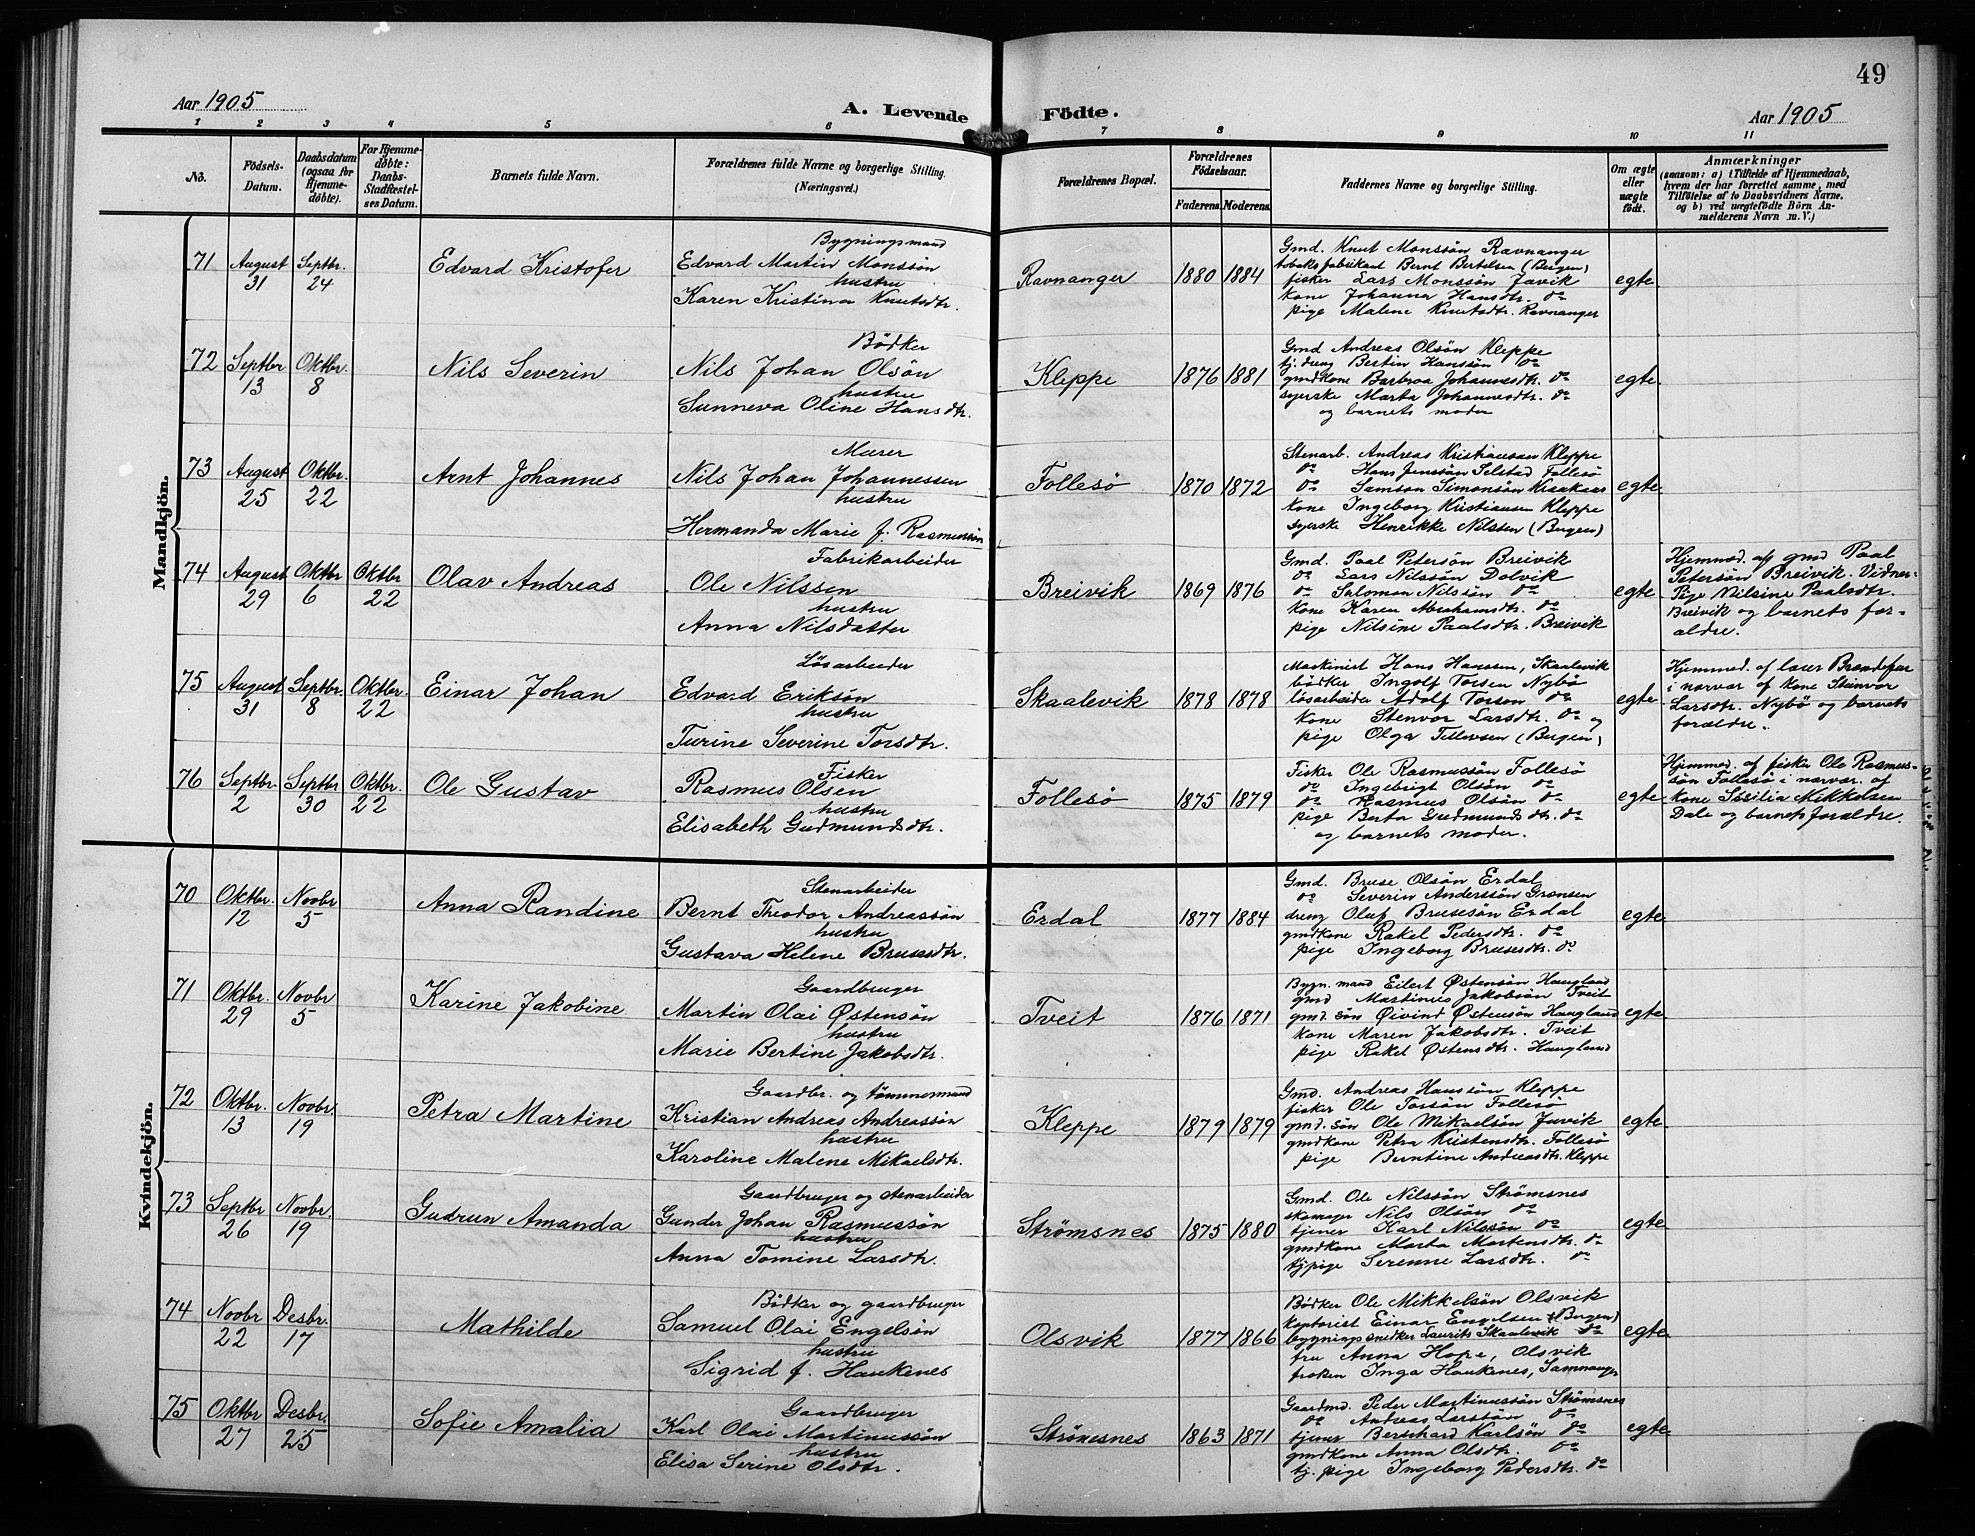 49
Aar 1905
A. Levende Födte.
Aar 1905
1 2 3 4 5 6 7 8 9 10 11
No.
Födsels-
Datum.
Daabsdatum
(ogsaa for
Hjemme-
döbte).
For Hjemme-
döbte:
Daabs-
Stadfæstel-
ses Datum.
Barnets fulde Navn.
Forældrenes fulde Navne og borgerlige Stilling.
(Næringsvei.)
Forældrenes Bopæl.
Forældrenes
Födselsaar.
Faderens. Moderens.
Faddernes Navne og borgerlige Stilling.
Om ægte
eller
uægte
födt.
Anmærkninger
(saasom: a) i Tilfælde af Hjemmedaab,
hvem der har forrettet samme, med
Tilföielse af to Daabsvidners Navne,
og b) ved uægtefödte Börn An-
melderens Navn m. V.)
Mandkjön.
71
August
31
Septbr.
24
Edvard Kristofer
Bygningsmand
Edvard Martin Monssön
hustru
Karen Kristina Knutsdtr.
Ravnanger
1880 1884
Gmd. Knut Monssön Ravnanger
tobaksfabrikant Bernt Bertelsen (Bergen)
fisker Lars Monssön Juvik
kone Johanna Hansdtr. do
pige Malene Knutsdtr. Ravnanger
egte
72
Septbr
13
Oktbr.
8
Nils Severin
Bödker
Nils Johan Olsön
hustru
Sunneva Oline Hansdtr.
Kleppe
1876 1881
Gmd Andreas Olsön Kleppe
tj. dreng Bertin Hanssön do
gmdkone Barbroa Johannesdtr. do
syerske Marta Johannesdtr. do
og barnets moder
egte
73
August
25
Oktbr.
22
Arnt Johannes
Murer
Nils Johan Johannessen
hustru
Hermanda Marie f. Rasmussön
Follesø
1870 1872
Stenarb. Andreas Kristiansen Kleppe
do Hans Jenssön Selstad Follesö
do Samson Simonsön Kraakaas
kone Ingeborg Kristiansen Kleppe
syerske Henrikke Nilssen (Bergen)
egte
74
August
29
Oktbr
6
Oktbr
22
Olav Andreas
Fabrikarbeider
Ole Nilssen
hustru
Anna Nilsdatter
Breivik
1869 1876
Gmd. Paal Petersön Breivik
do Lars Nilssön Dolvik
do Salomon Nilssön do
kone Karen Abrahamsdtr. do
pige Nilsine Paalsdtr. Breivik
egte
Hjemmed. af gmd Paal
Petersön Breivik. Vidner-
Pige Nilsine Paalsdtr.
Breivik og barnets for-
ældre.
75
August
31
Septbr.
8
Oktbr.
22
Einar Johan
Løsarbeider
Edvard Eriksön
hustru
Turine Severine Torsdtr.
Skaalevik
1878 1878
Maskinist Hans Hanssen, Skaalevik
bödker Ingolf Torsen Nybö
løsarbeider Adolf Torson do
kone Stenvor Larsdtr. do og
pige Olga Tellevsen (Bergen)
egte
Hjemmed. af lærer
i nærvær af kone Steinvor
Larsdtr. Nybö og barnets
forældre.
76
Septbr.
2
Septbr
30
Oktbr.
22
Ole Gustav
Fisker
Rasmus Olsen
hustru
Elisabeth Gudmundsdtr.
Follesö
1875 1879
Fisker Ole Rasmussön Follesö
do Ingebrigt Olsön do
do Rasmus Olsön do
pige Berta Gudmundsdtr. do
og barnets moder.
egte
Hjemmed. af fisker Ole Rasmus-
sön Follesö i nærvær. af
kone Sesilia Mikkelsen
Dale og barnets forældre.
Kvindekjön.
70
Oktbr.
12
Novbr
5
Anna Randine
Stenarbeider
Bernt Theodor Andreassön
hustru
Gustava Helene Brusesdtr.
Erdal
1877 1884
Gmd. Bruse Olsön Erdal
do Severin Anderssön Gransen
dreng Oluf Brusesön Erdal
gmdkone Rakel Pedersdtr. do
pige Ingeborg Brusesdtr. do
egte
71
Oktbr.
29
Novbr
5
Karine Jakobine
Gaardbruger
Martin Olai Østensön
hustru
Marie Bertine Jakobsdtr.
Tveit
1876 1871
Bygn. mand Eilert Østensön Haugland
gmd Martines Jakobsön Tveit
gmd. sön Øivind Østensön Haugland
kone Maren Jakobsdtr. Tveit
pige Rakel Østensdtr. Haugland
egte
72
Oktbr.
13
Novbr.
19
Petra Martine
Gaardbr. og tømmermand
Kristian Andreas Andreassön
hustru
Karoline Malene Mikaelsdtr.
Kleppe
1879 1879
Gmd. Andreas Hanssön Kleppe
fisker Ole Torsön Follesö
gmd. sön Ole Mikaelsön Juvik
gmdkone Petra Kristensdtr. Follesö
pige Berntine Andreasdtr. Kleppe
egte
73
Septbr
26
Novbr.
19
Gudrun Amanda
Gaardbruger og stenarbeider
Gunder Johan Rasmussön
hustru
Anna Tomine Larsdtr.
Strømsnes
1875 1880
Gmd. Ole Nilssön Strømsnes
skomager Nils Olsön do
tjener Karl Nilssön do
gmdkone Marta Mortensdtr. do
tjpige Serenne Larsdtr. do
egte
74
Novbr
22
Desbr.
17
Mathilde
Bödker og gaardbruger
Samuel Olai Engelsön
hustru
Sigrid f. Haukenes
Olsvik
1877 1866
Bödker Ole Mikkelsön Olsvik
kontorist Einar Engelsen (Bergen)
bygningssnedker Laurits Skaalevik do
fru Anna Hope, Olsvik
frøken Inga Haukenes, Samnanger
egte
75
Oktbr
27
Desbr.
25
Sofie Amalia
Gaardbruger
Karl Olai Martinussön
hustru
Elisa Serine Olsdtr.
Strömsnes
1863 1871
Gaardmd. Peder Martinussön Strømsnes
do Andreas Larssön do
tjener Bernhard Karlsön do
gmdkone Anna Olsdtr. do
tj. pige Ingeborg Pedersdtr. do
egte